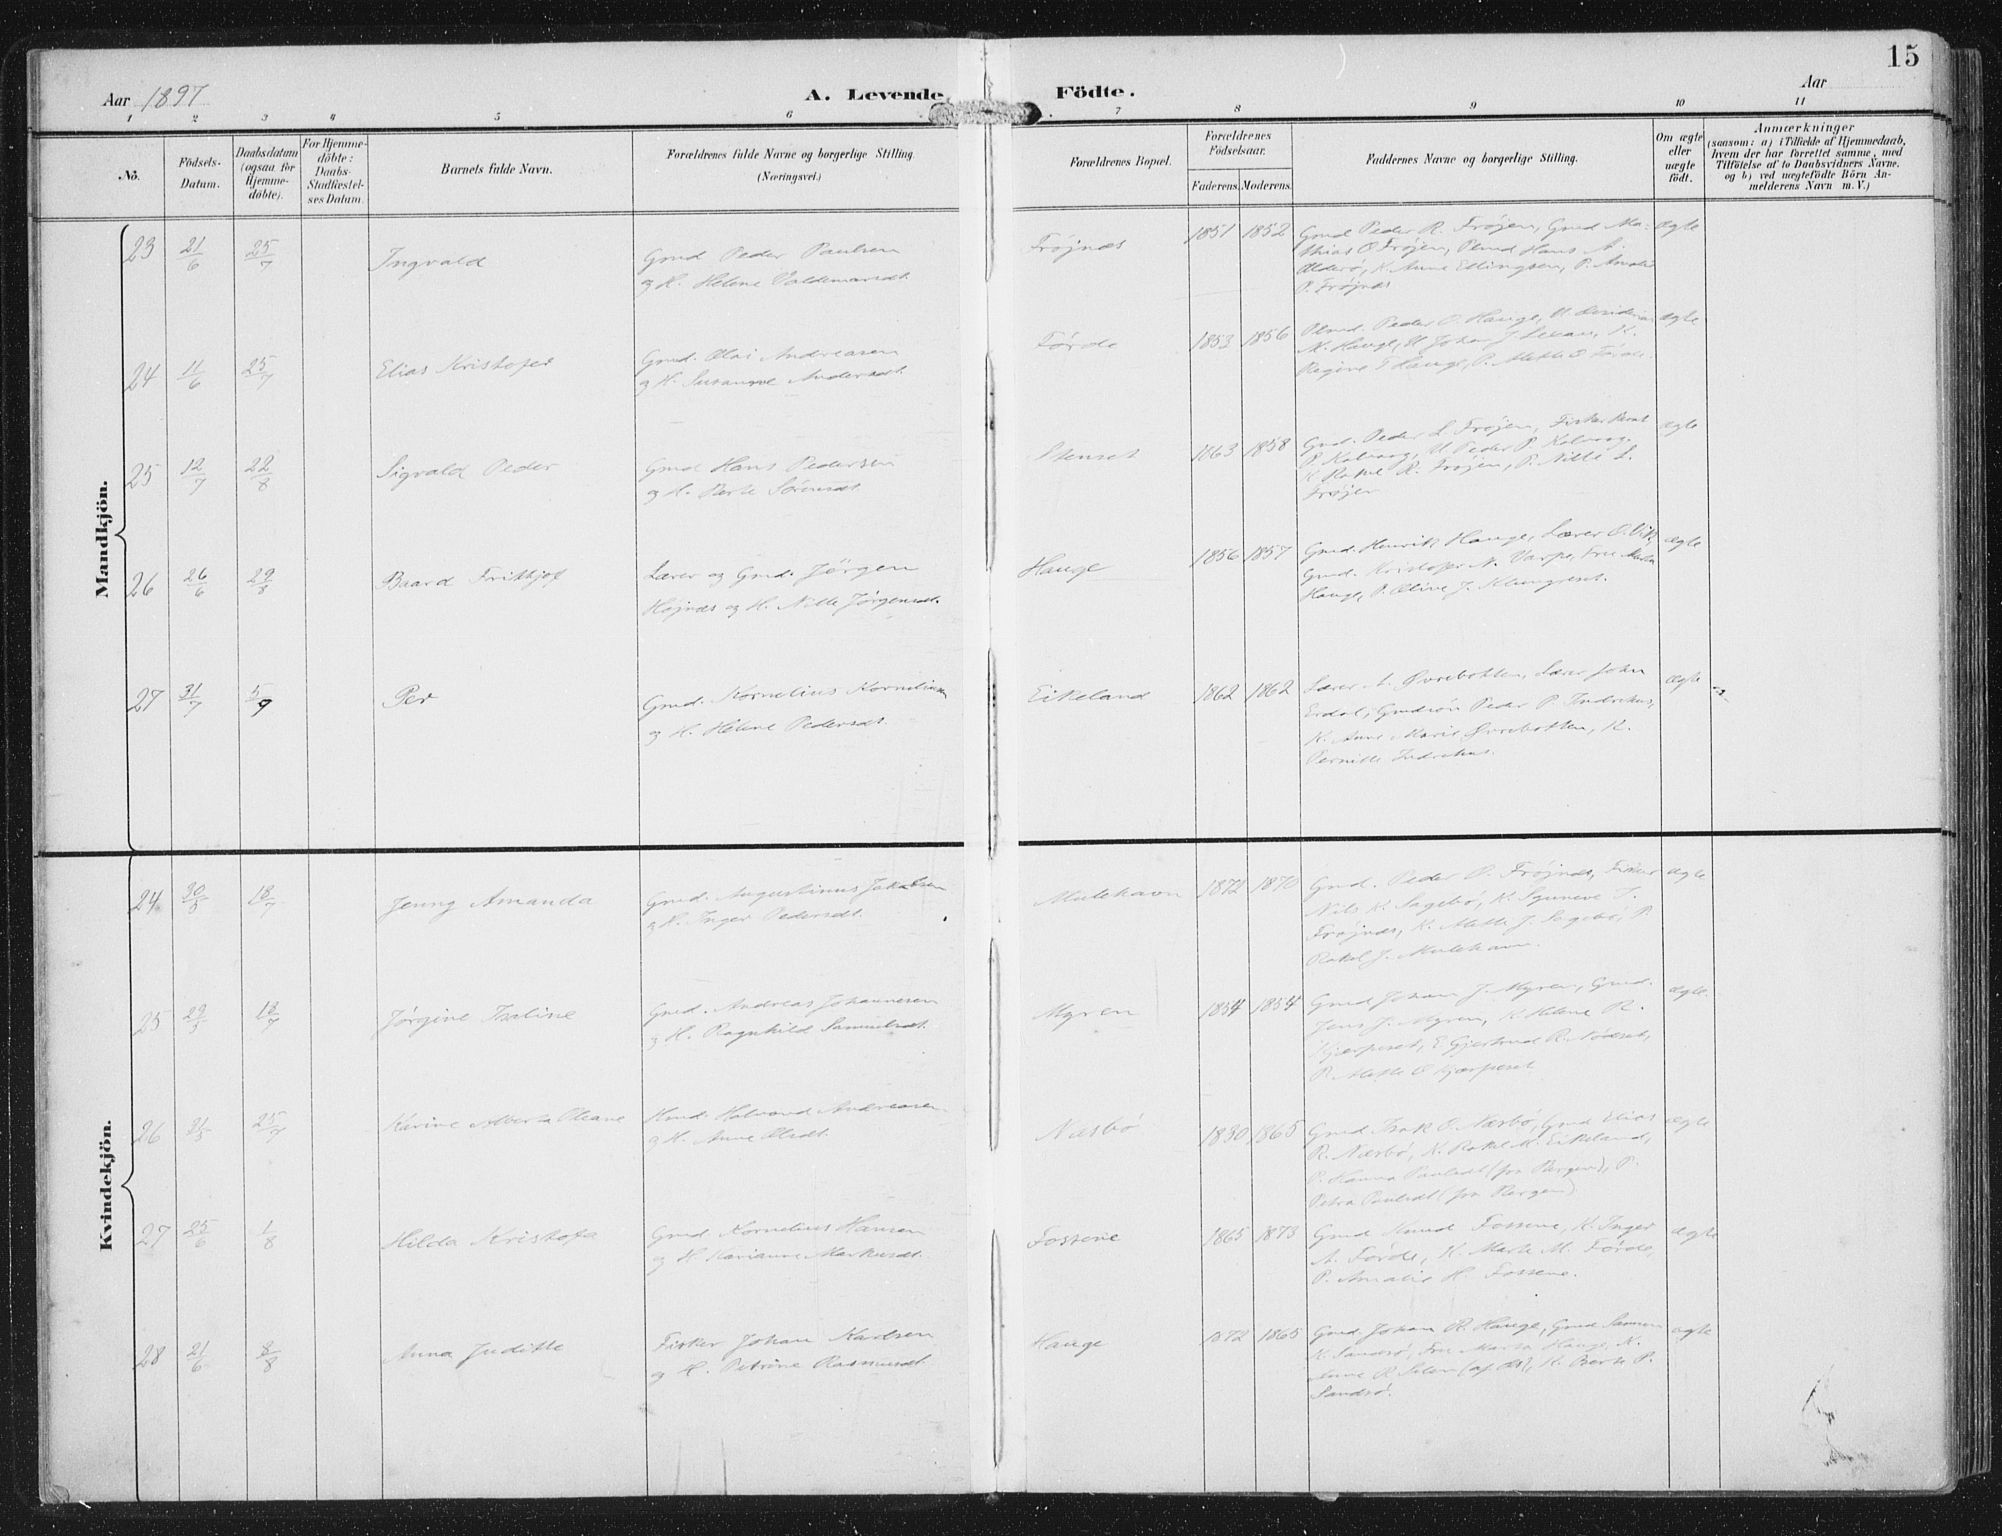 15
Aar 1897
A. Levende
Födte.
Aar
1 2 3 4 5 6 7 8 9 10 11
No.
Födsels-
Datum.
Daabsdatum
(ogsaa for
Hjemme-
döbte).
For Hjemme-
döbte:
Daabs-
Stadfæstel-
ses Datum.
Barnets fulde Navn.
Forældrenes fulde Navne og borgerlige Stilling.
(Næringsvei.)
Forældrenes Bopæl.
Forældrenes
Födselsaar.
Faderens. Moderens.
Faddernes Navne og borgerlige Stilling.
Om ægte
eller
uægte
födt.
Anmærkninger
(saasom: a) i Tilfælde af Hjemmedaab,
hvem der har forrettet samme, med
Tilföielse af to Daabsvidners Navne.
og b) ved uægtefödte Börn An-
melderens Navn m. V.)
Mandkjön.
23 21/6 25/7 Ingvald Gmd Peder Paulsen Frøjnæs 1851 1852 Gmd Peder R. Frøjen, Gmd Ma- ægte
og H. Helene Valdemarsdt. thias O Frøjen, Hans A.
K. Anne Ellingsen, P. Amali
P. Frøjnæs
24 11/6 25/7 Elias Kristofer Gmd. Olai Andreasen Førde 1853 1856 Peder O. Hauge, ægte
og H. Susanne Andersdt. M. Hauge, U Johan J. K.
Regine T Hauge, P. Mette O Førde.
25 12/7 22/8 Sigvald Peder Gmd Hans Pedersen Stenset 1863 1858 Gmd. Peder L. Frøjen, Fisker ægte
og H. Berte Sørensdt P. Kalvaag, U Peder P. Kalvaag.
K Rakel R. Frøjen, P. Nille L.
Frøjen
26 26/6 29/8 Baard Frithjof Lærer og Gmd. Jørgen Hauge 1856 1857 Gmd. Henrik Hauge, Lærer O. Vik, ægte
Højnæs og H. Nille Jørgensdt. Gmd. Kristofer N. Varpe, Fru Marta
Hauge, P. Oline J. Klungreset.
27 31/7 5/9 Per Gmd. Kornelius Korneliusen Eikeland 1862 1862 Lærer A. Øvrebotten, Lærer John ægte
og H. Helene Pedersdt. Erdal, Gmdsøn Peder P. Indrehus,
K. Anne Marie Øvrebotten, K.
Pernille Indrehus.
Kvindekjön.
24 30/5 18/7 Jenny Amanda Gmd. Augustinus Jakobsen Mulehavn 1872 1870 Gmd. Peder O. Frøjnæs, Fisker ægte
og H. Inger Pedersdt. Nils K. Sagebø, K. Synneve T.
Frøjnæs, K. Mette J. Sagebø, P.
Rakel J. Mulehavn.
25 29/5 18/7 Jørgine Isaline Gmd. Andreas Johannesen Myren 1854 1854 Gmd Johan J. Myren, Gmd. ægte
og H. Ragnhild Samuelsdt. Jens J. Myren, K Helene R.
E Gjertrud R.
P. Mette O
26 21/5 25/7 Karine Alberta Oleane Kmd. Halvard Andreasen Næsbø 1830 1865 Gmd Isak O. Næsbø, Gmd Elias ægte
og H. Anne Olsdt. R. Næsbø, K. Rakel M. Eikeland,
P. Hanna Paulsdt (fra Bergen), P.
Petra Paulsdt (fra Bergen).
27 25/6 1/8 Hilda Kristofa Gmd Kornelius Hansen Fossene 1865 1873 Gmd Knud Fossene, K. Inger ægte
og H Karianne Markusdt. A. Førde, K. Marte M. Førde,
P. Amalie H. Fossene.
28 21/6 8/8 Anna Juditte Fisker Johan Karlsen Hauge 1872 1865 Gmd. Johan R. Hauge, Gmd ægte
og H. Petrine Rasmusdt. K. Sandsø, Fru Marta Hauge, K.
Anne R K Berte P.
Sandsø.